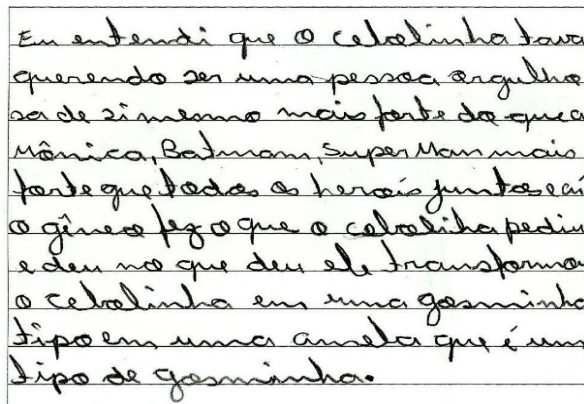 Eu entendi que o cebolinha tava
querendo ser uma pessoa orgulho
sa de si mesmo mais forte do que a
Mônica, Batmam, Super Man mais
forte que todos os heroís juntos e aí
o gêneo fez o que o cebolinha pediu
e deu no que deu ele transformou
o cebolinha em uma gosminha
tipo em uma ameba que é um
tipo de gosminha.